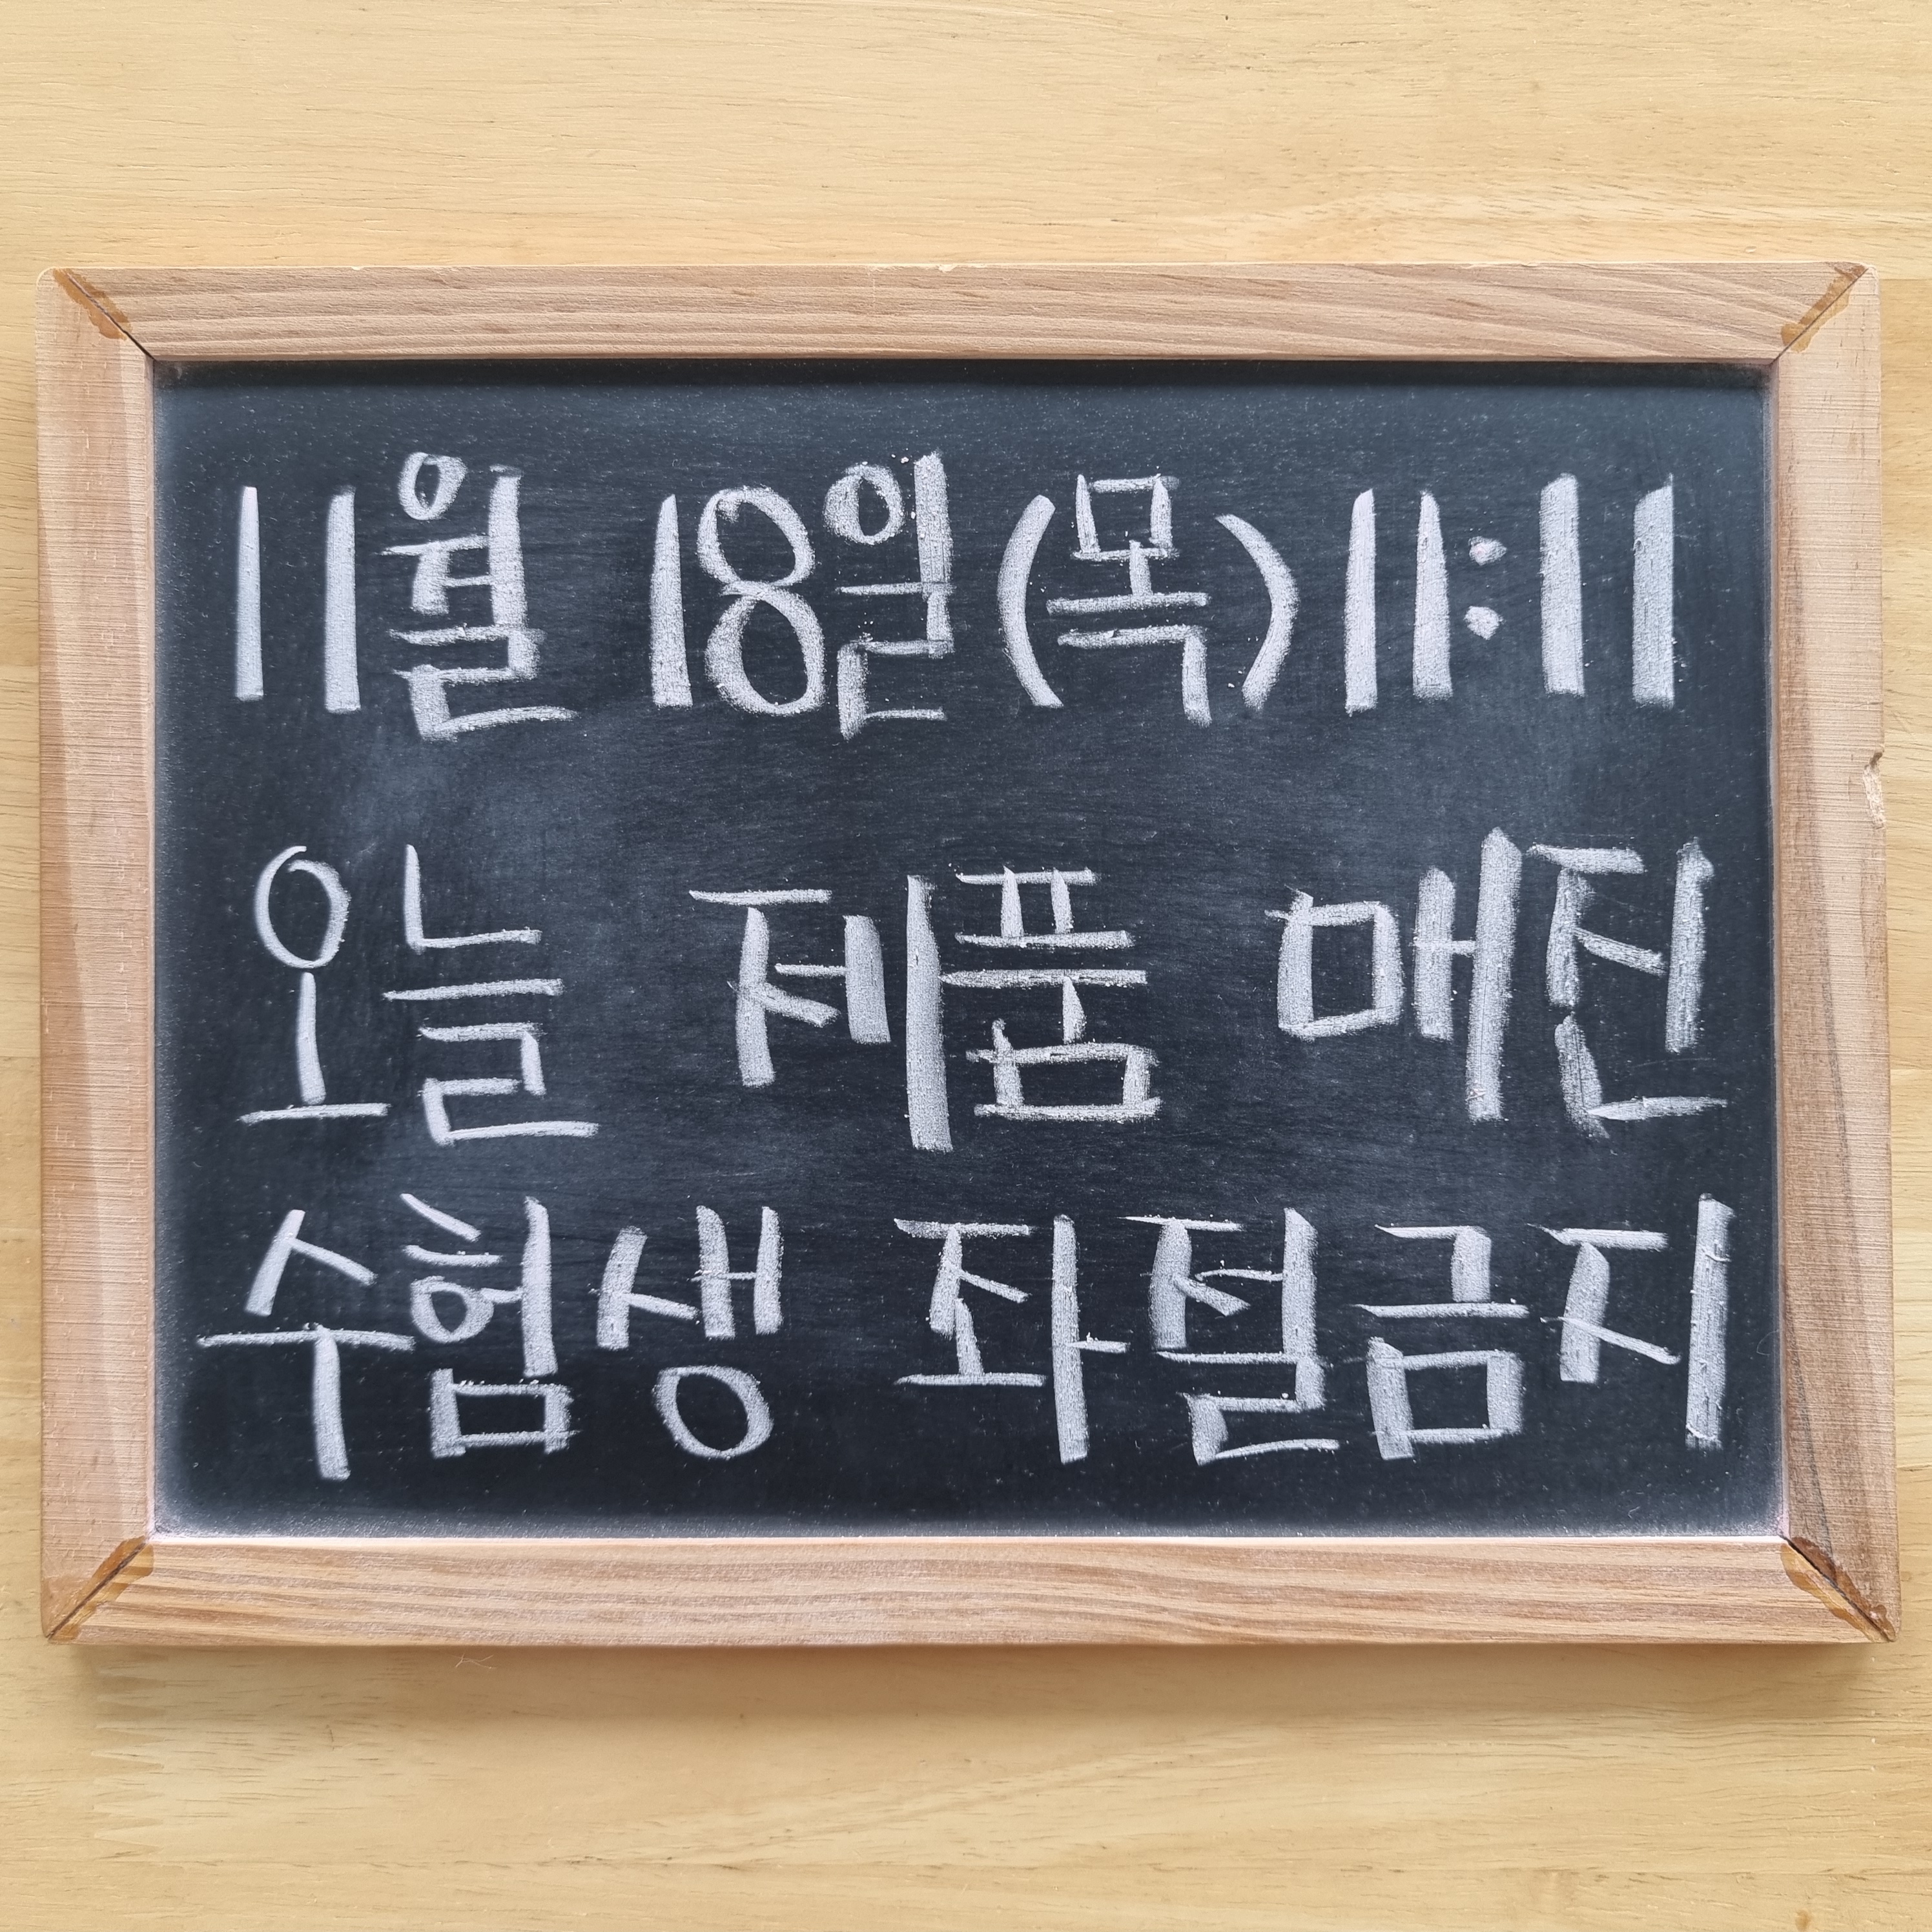 11월 18일(목) 11:11
오늘 제품 매진
수험생 좌절금지